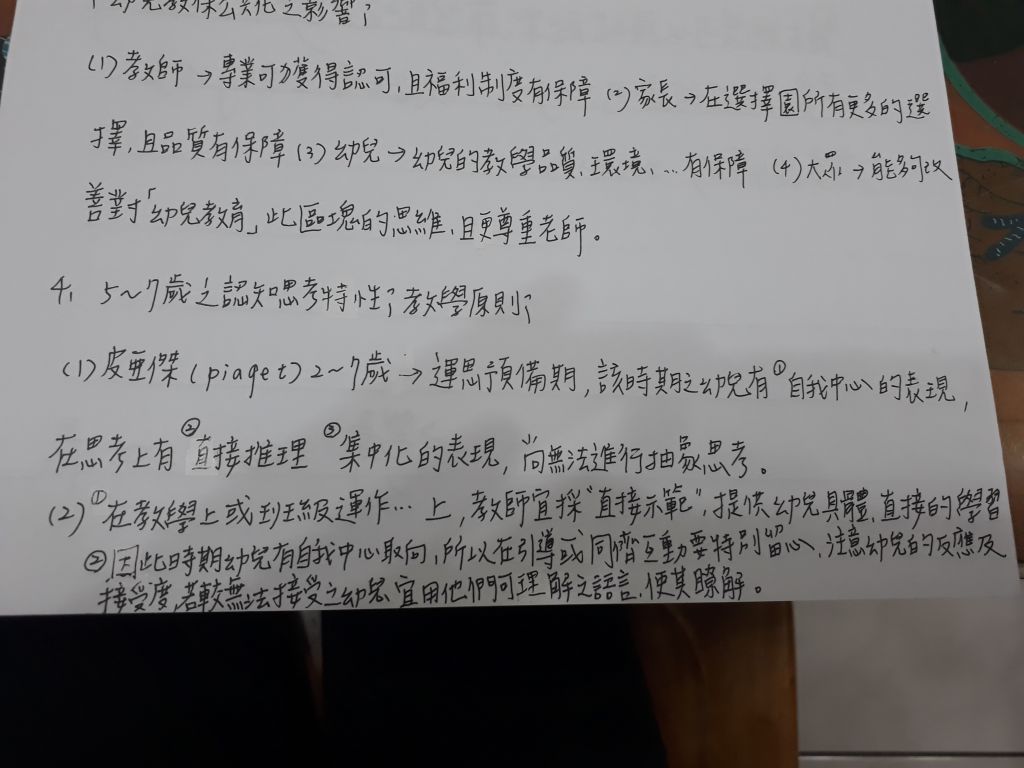 幼兒教保公共化之影響?
(1) 教師 → 專業可獲得認可, 且福利制度有保障 (2) 家長 → 在選擇園所有更多的選
擇, 且品質有保障 (3) 幼兒 → 幼兒的教學品質、環境、… 有保障 (4) 大眾 → 能夠改
善對「幼兒教育」此區塊的思維, 且更尊重老師。
4、 5~7歲之認知思考特性? 教學原則?
(1) 皮亞傑 (piaget) 2~7歲 → 運思預備期, 該時期之幼兒有①自我中心的表現,
在思考上有②直接推理 ③集中化的表現, 尚無法進行抽象思考。
(2) ①在教學上或班級運作… 上, 教師宜採"直接示範", 提供幼兒具體、直接的學習
②因此時期幼兒有自我中心取向, 所以在引導或同儕互動要特別留心, 注意幼兒的反應及
接受度, 若較無法接受之幼兒, 宜用他們可理解之語言, 使其瞭解。